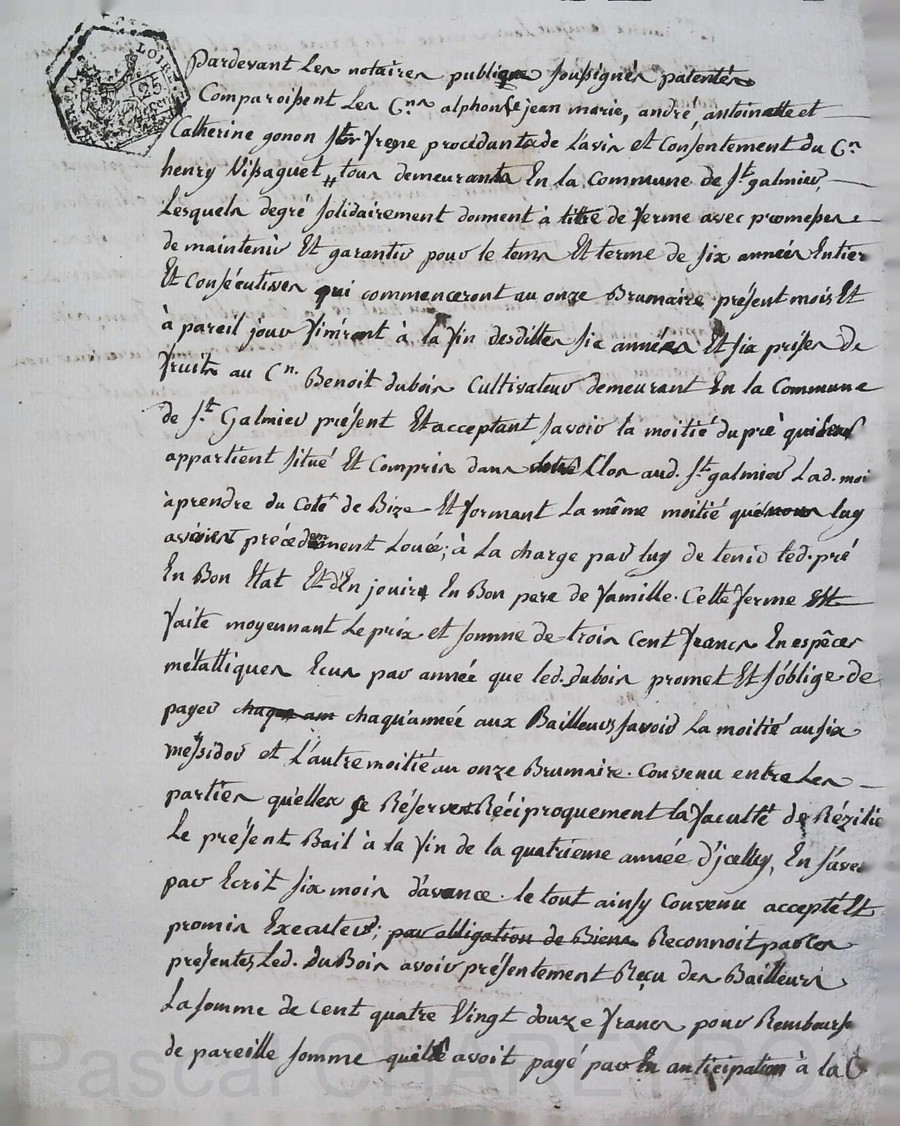 LOIRE
25
Cen
Pardevant Les notaires publique soussignés patentés
Comparoissent Les Cns alphonse jean marie, andré, antoinette et
Catherine gonon st yrene procédants de L'avis et Consentement du Cn
henry Vissaguet tous demeurants En la Commune de St galmier,
Lesquels degré solidairement donnent à titre de ferme avec promesse
de maintenir Et garantir pour le tems Et terme de six années Entier
Et Consécutives qui commenceront au onze Brumaire présent mois Et
à pareil jour finiront à la fin desdittes six années Et six prises de
fruits au Cn. Benoit dubois Cultivateur demeurant En la Commune
de St Galmier présent Et acceptant savoir la moitié du pré qui leur
appartient situé Et Compris dans Clos aud. St galmier Lad. moi
àprendre du Coté de Bize Et formant La même moitié qué luy
avoient précedemment Louée; à La charge par luy de tenir led. pré
En Bon Etat Et d'En jouir En Bon pere de famille. Cette ferme Est
faite moyennant Le prix et somme de trois Cent francs En espêces
métalliques Ecus par année que led. dubois promet Et s'oblige de
payer chaque an chaqu'année aux Bailleurs savoir La moitié au six
messidor et L'autre moitié au onze Brumaire. Convenu entre Les
parties qu'elles se Réservent Réciproquement la faculté de Rézilie
Le présent Bail à la fin de la quatrieme année d'jcelluy, En s'aver
par Ecrit six mois d'avance. le tout ainsy Convenu accepté Et
promis Executer; par obligation de Biens Reconnoit par ces
présentes Led. DuBois avoir présentement Reçu des Bailleurs
La somme de Cent quatre Vingt douze francs pour Rembourse
de pareille somme qu'il avoit payé par En anticipation à la C
Pascal CHAPEYRO